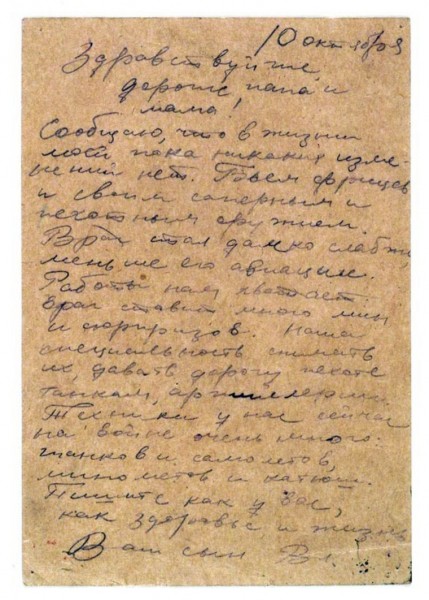 10 октября
Здравствуйте,
дорогие папа и
мама!
Сообщаю, что в жизни
моей пока никаких изме-
нений нет. Бьем фрицев
и своим саперным и
пехотным оружием.
Враг стал далеко слабже,
меньше его авиации.
Работы нам хватает.
Враг ставит много мин
и сюрпризов. Наша
специальность снимать
их, давать дорогу пехоте
танкам, артиллерии.
Техники у нас сейчас
на войне очень много.
танков и самолетов,
минометов и катюш.
Пишите как у вас,
как здоровье и жизнь
Ваш сын